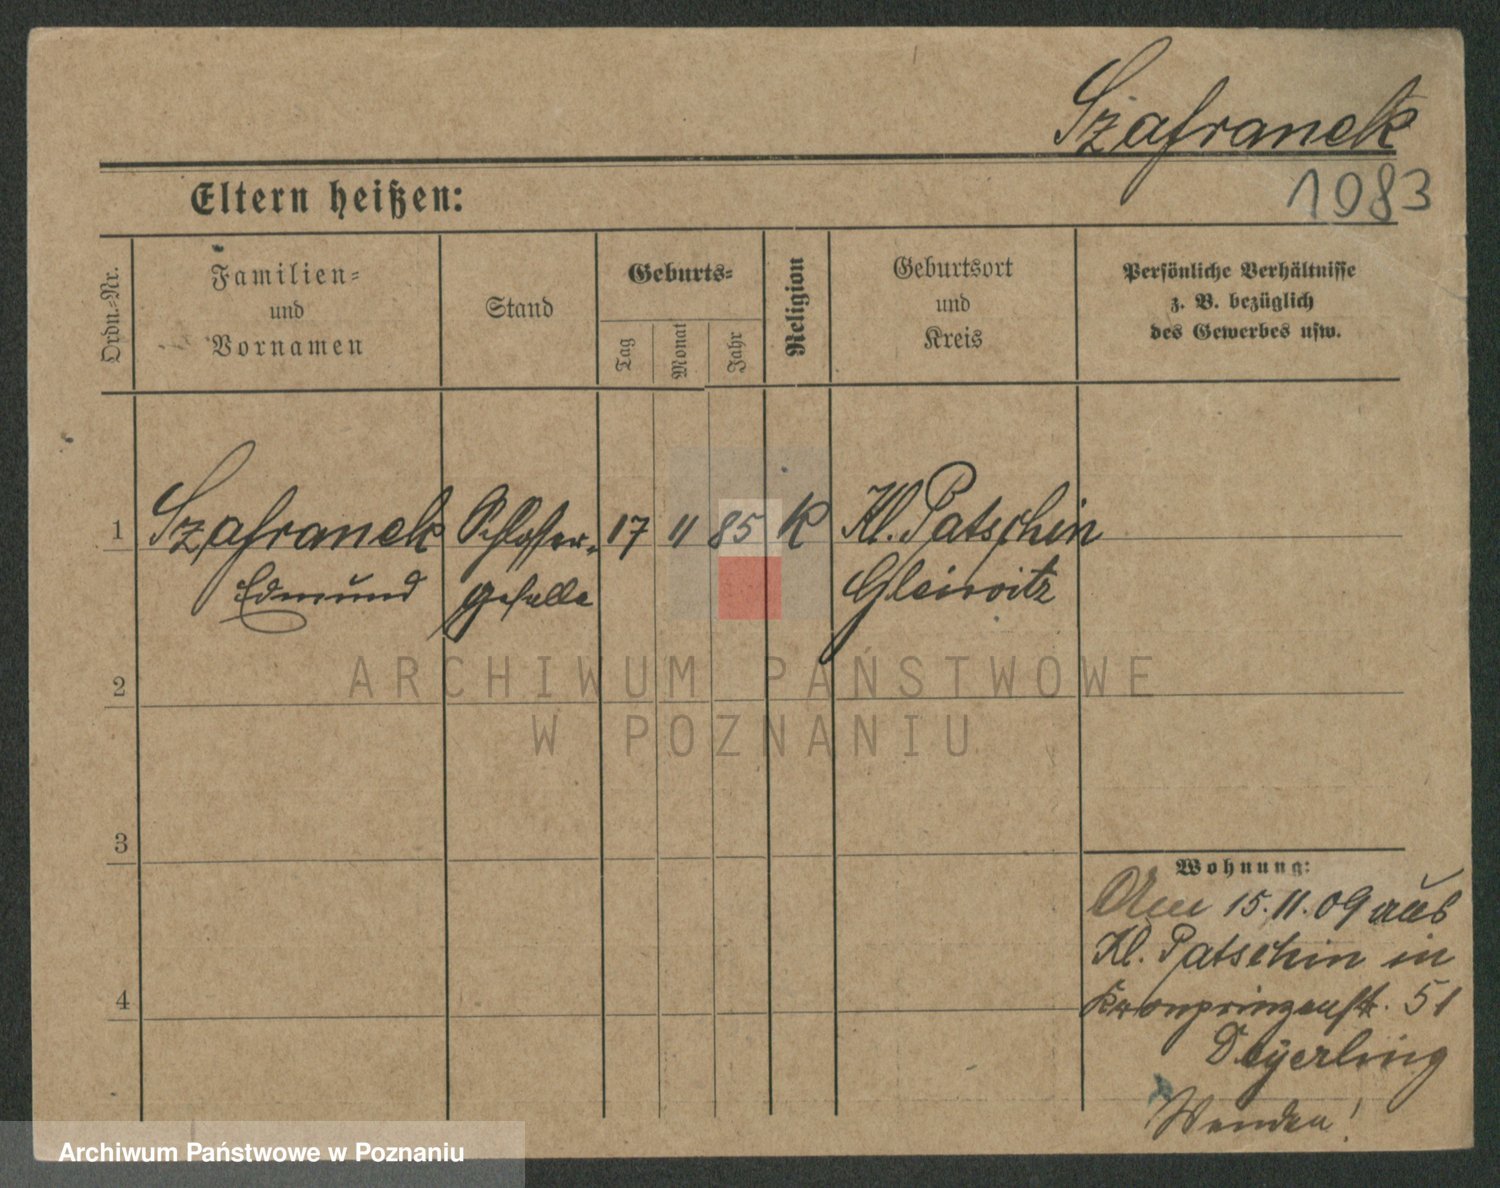 Szafranek
1983
Eltern heißen:
Ordn.-Nr.
Familien-
und
Vornamen
Stand
Geburts-
Tag
Monat
Jahr
Religion
Geburtsort
und
Kreis
Persönliche Verhältnisse
z. B. bezüglich
des Gewerbes usw.
1 Szafranek Schlosser- 17 11 85 K Kl. Patschin
Edmund geselle Gleiwitz
2
3
4
Wohnung:
Am 15.11.09 aus
Kl. Patschin in
Kronprinzenstr. 51
Deyerling
Wenden!
ARCHIWUM PAŃSTWOWE
W POZNANIU
Archiwum Państwowe w Poznaniu